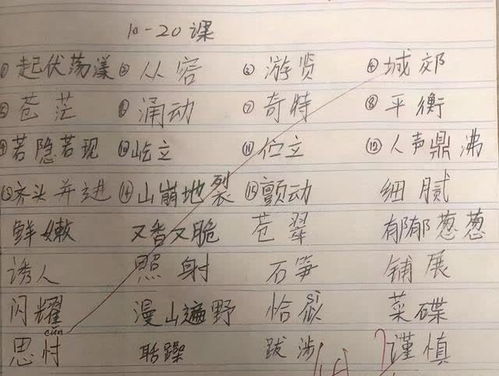 10-20课
①起伏荡漾 ②从容 ③游览 ④城郊
⑤苍茫 ⑥涌动 ⑦奇特 ⑧平衡
⑨若隐若现 ⑩屹立 ⑪伫立 ⑫人声鼎沸
⑬齐头并进 ⑭山崩地裂 ⑮颤动 细腻
鲜嫩 又香又脆 苍翠 郁郁葱葱
诱人 照射 石笋 铺展
sì
闪耀 漫山遍野 恰似 菜碟
cǔn
思忖 聒躁 跋涉 谨慎